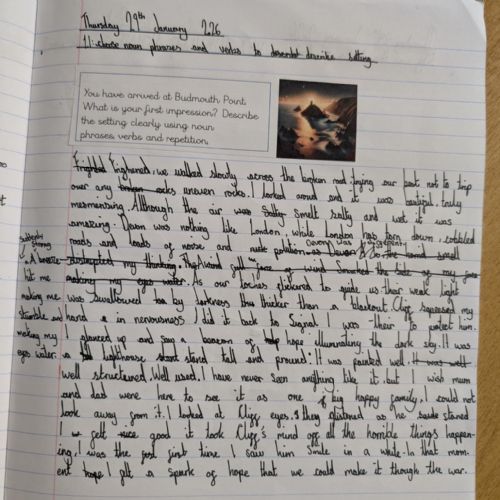 Thursday 29th January 2026
LI: choose noun phrases and verbs to describe setting.
You have arrived at Budmouth Point.
What is your first impression? Describe
the setting clearly using noun
phrases, verbs and repetition.
Frightened, we walked slowly across the broken road trying our best not to trip
over any uneven rocks. I looked around and it was beautiful, truly
mesmerising. Although the air was smelt salty and wet it was
amazing. Devon was nothing like London, while London has torn down, cobbled
roads and loads of noise and
Suddenly
strong
hit me. As our torches flickered to guide us their weak light
making me was swallowed by darkness thicker than a blackout. Cliff squeezed my
stumble and hand in nervousness I did it back to signal I was their to protect him.
making my I glanced up and say a beacon of hope illuminating the dark sky. It was
eyes water. a lighthouse stand tall and pround. It was painted well.
well structured. Well used. I have never seen anything like it but I wish mum
and dad were here to see it as one big happy family. I could not
look away from it. I looked at Cliff eyes, they glistened as he
I felt good it took Cliff's mind off all the horrible things happen-
ing, I was the first time I saw him smile in a while. In that mom-
ent I felt a spark of hope that we could make it though the war.